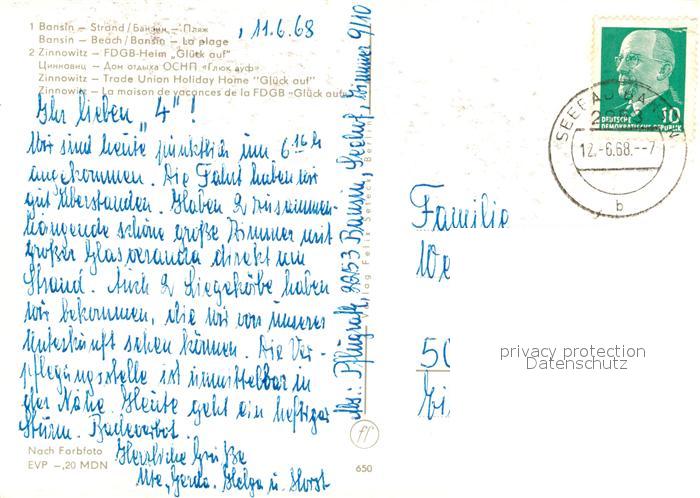 1 Bansin – Strand / Банзин – Пляж
Bansin – Beach / Bansin – La plage
2 Zinnowitz – FDGB-Heim „Glück auf"
Цинновиц – Дом отдыха ОСНП «Глюк ауф»
Zinnowitz – Trade Union Holiday Home "Glück auf"
Zinnowitz – La maison de vacances de la FDGB «Glück auf»
, 11.6.68
Ihr lieben „4"!
Wir sind heute pünktlich um 6 16 h
angekommen. Die Fahrt haben wir
gut überstanden. Haben 2 zusammen-
hängende schöne große Zimmer mit
großer Glasveranda direkt am
Strand. Auch 2 Liegekörbe haben
wir bekommen, die wir von unserer
Unterkunft sehen können. Die Ver-
pflegungsstelle ist unmittelbar in
der Nähe. Heute geht ein heftiger
Sturm. Badeverbot.
Herzliche Grüße
Ute, Gerda, Helga u. Horst
Nach Farbfoto
EVP –,20 MDN
650
Abs.: Pflugradt, 2253 Bansin, Seehof, Zimmer 9/10
DEUTSCHE
DEMOKRATISCHE REPUBLIK
10
SEEBAD BANSIN
12.-6.68.--7
b
Familie
We
50
privacy protection
Datenschutz